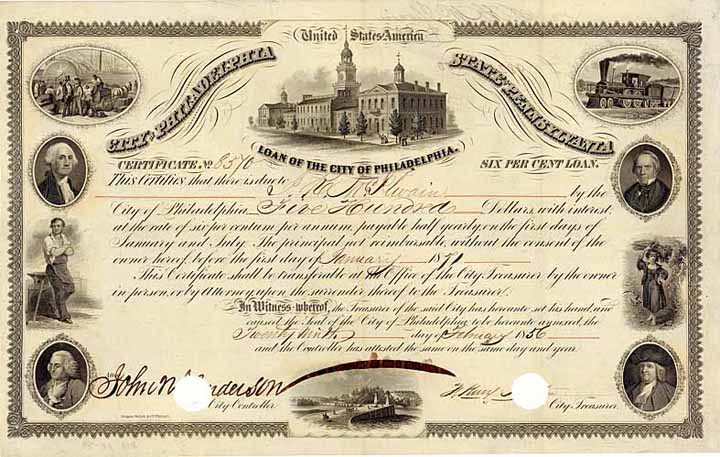 United States America
CITY of PHILADELPHIA
STATE of PENNSYLVANIA
LOAN OF THE CITY OF PHILADELPHIA.
CERTIFICATE No
SIX PER CENT LOAN.
This Certifies that there is due to
by the
City of Philadelphia Five Hundred Dollars, with interest,
at the rate of six per centum per annum, payable half yearly on the first days of
January and July. The principal not reimbursable without the consent of the
owner hereof before the first day of January 1871
This Certificate shall be transferable at Office of the City Treasurer by the owner
in person, or by Attorney upon the surrender thereof to the Treasurer.
In Witness whereof, the Treasurer of the said City has hereunto set his hand, and
caused the Seal of the City of Philadelphia, to be hereunto annexed, the
Twenty ninth day of February 1856
and the Controller has attested the same on the same day and year.
John N. Henderson
City Controller.
City Treasurer.